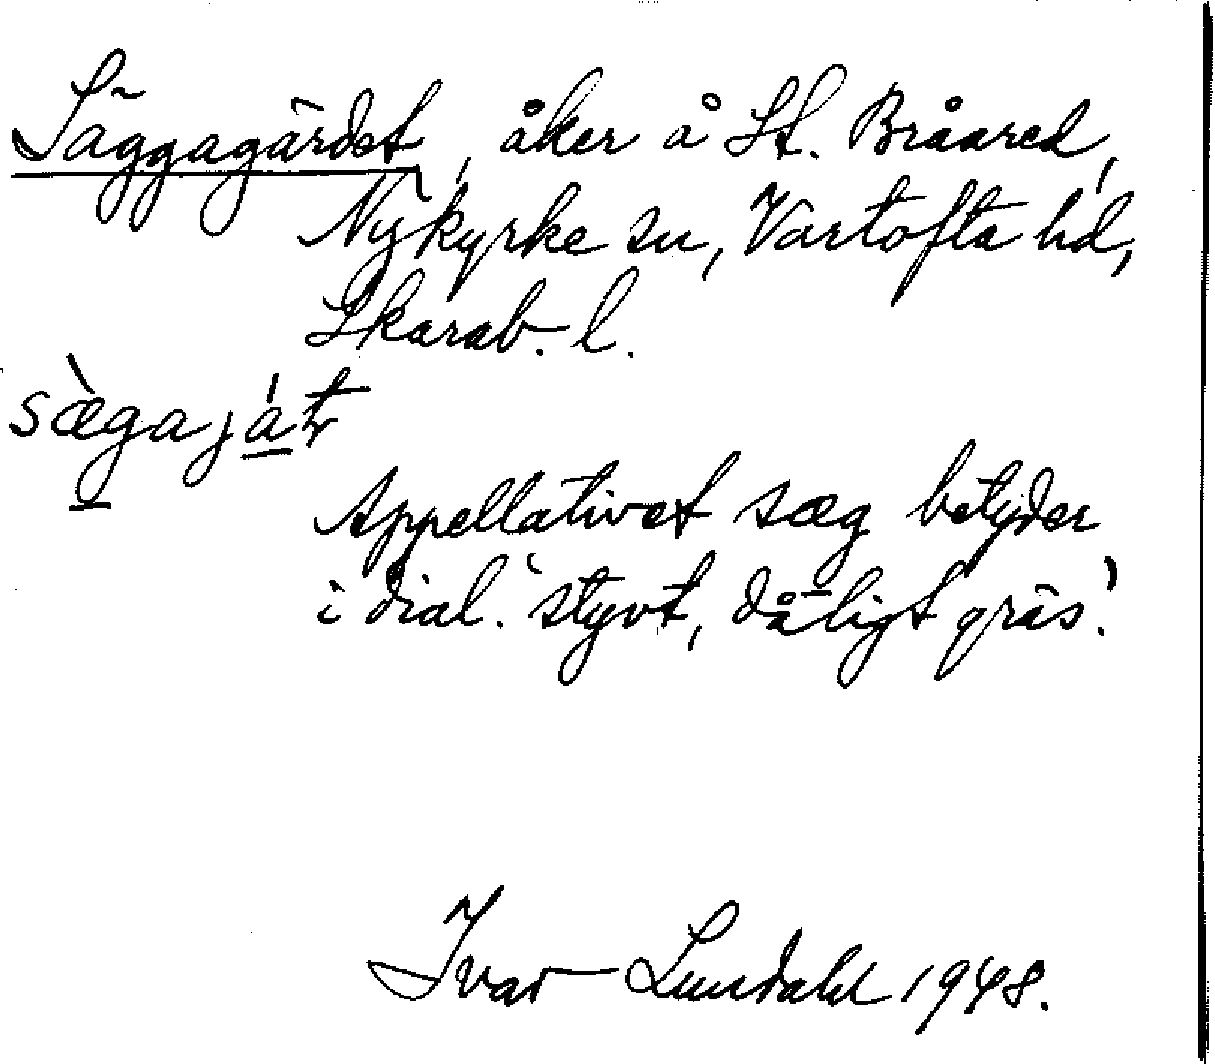 Säggagärdet, åker å St. Bråared,
Nykyrke sn, Vartofta hd,
Skarab. l.
sæ̀gajáṭ
Appellativet sæg betyder
i dial. 'styvt, dåligt gräs'.
Ivar Lundahl 1948.